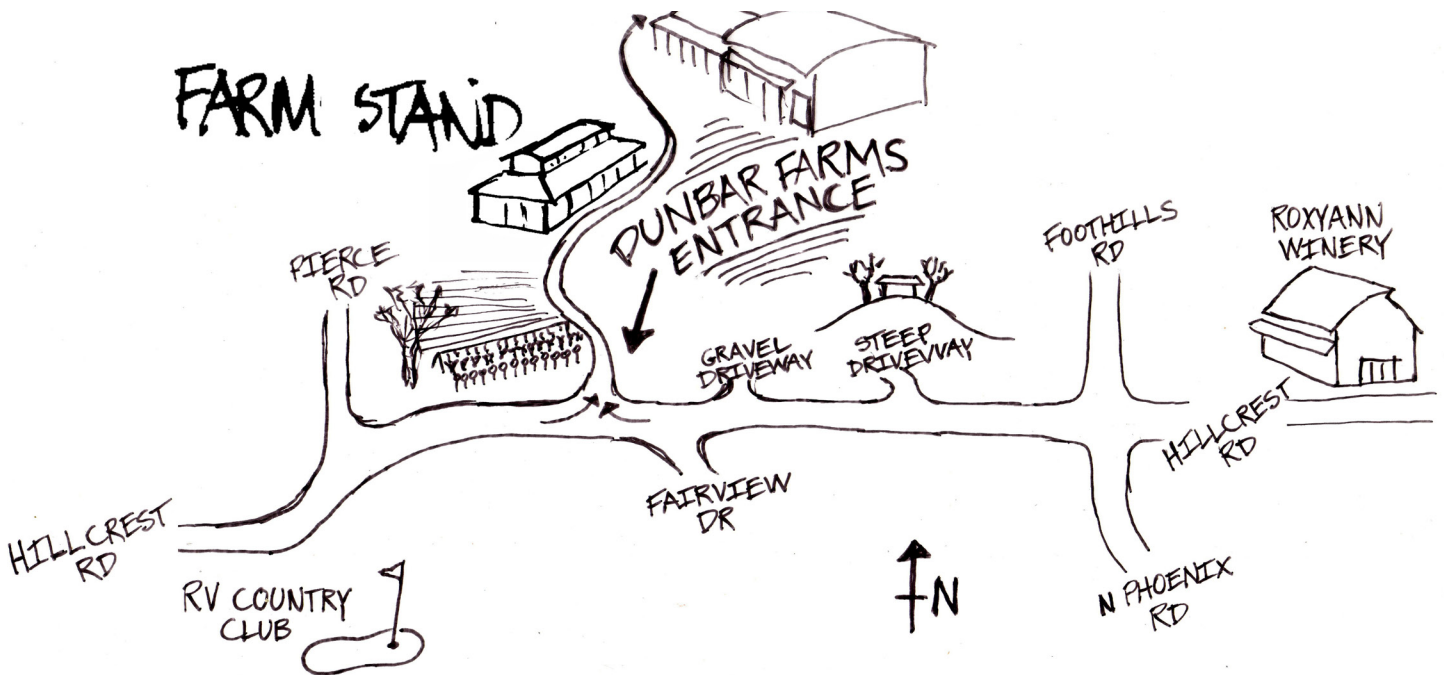 FARM STAND
DUNBAR FARMS
ENTRANCE
PIERCE
RD
FOOTHILLS
RD
ROXYANN
WINERY
GRAVEL
DRIVEWAY
STEEP
DRIVEWAY
HILLCREST
RD
FAIRVIEW
DR
HILLCREST
RD
RV COUNTRY
CLUB
N
N PHOENIX
RD